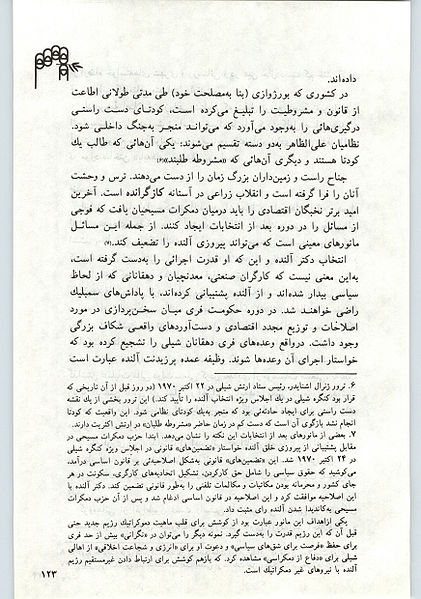 داده‌اند.
در کشوری که بورژوازی (بنا به‌مصلحت خود) طی مدتی طولانی اطاعت
از قانون و مشروطیت را تبلیغ می‌کرده است، کودتای دست راستی
درگیری‌هائی را به‌وجود می‌آورد که می‌توانند منجر به‌جنگ داخلی شود.
نظامیان علی‌الظاهر به‌دو دسته تقسیم می‌شوند: یکی آن‌هائی که طالب یك
کودتا هستند و دیگری آن‌هائی که «مشروطه طلبند»(۶)
جناح راست و زمین‌داران بزرگ زمان را از دست می‌دهند. ترس و وحشت
آنان را فرا گرفته است و انقلاب زراعی در آستانه کارگرانده است. آخرین
امید برتر نخبگان اقتصادی را باید درمیان دمکرات مسیحیان یافت که فوجی
از مسائل را در دوره بعد از انتخابات ایجاد کنند. از جمله این مسائل
مانورهای معینی است که می‌تواند پیروزی آلنده را تضعیف کند.(۷)
انتخاب دکتر آلنده و این که او قدرت اجرائی را به‌دست گرفته است،
به‌این معنی نیست که کارگران صنعتی، معدنچیان و دهقانانی که از لحاظ
سیاسی بیدار شده‌اند و از آلنده پشتیبانی کرده‌اند، با پاداش‌های سمبلیك
راضی خواهند شد. در دوره حکومت فری میان سخن‌پردازی در مورد
اصلاحات و توزیع مجدد اقتصادی و دست‌آوردهای واقعی شکاف بزرگی
وجود داشت. درواقع وعده‌های فری دهقانان شیلی را تشجیع کرده بود که
خواستار اجرای آن وعده‌ها شوند. وظیفه عمده پرزیدنت آلنده عبارت است
۶. ترور ژنرال اشنایدر، رئیس ستاد ارتش شیلی در ۲۲ اکتبر ۱۹۷۰ (دو روز قبل از آن تاریخی که
قرار بود کنگره شیلی در یك اجلاس ویژه انتخاب آلنده را تأیید کند.) این ترور بخشی از یك نقشه
دست راستی برای ایجاد حادثه‌ئی بود که منجر به‌یك کودتای نظامی شود. این واقعیت که کودتا
انجام نشد بازگوی آن است که دست کم در زمان حاضر «مشروطه طلبان» در ارتش اکثریت دارند.
۷. بعضی از مانورهای بعد از انتخابات این نکته را نشان می‌دهد. ابتدا حزب دمکرات مسیحی در
مقابل پشتیبانی از پیروزی خلق آلنده خواستار «تضمین‌های» قانونی در اجلاس ویژه کنگره شیلی
در ۲۴ اکتبر ۱۹۷۰ شد. این «تضمین‌های» قانونی به‌شکل اصلاحیه‌ئی بر قانون اساسی درآمد،
می‌کوشید که حقوق سیاسی را شامل حق کارکردن، تشکیل اتحادیه‌های کارگری، سکونت در هر
جای کشور و محرمانه بودن مکاتبات و مکالمات تلفنی را به‌طور قانونی تضمین کند. دکتر آلنده با
این اصلاحیه موافقت کرد و این اصلاحیه در قانون اساسی ادغام شد و پس از آن حزب دمکرات
مسیحی به‌کاندیدا شدن آلنده رای مثبت داد.
یکی ازاهداف این مانور عبارت بود از کوشش برای قلب ماهیت دموکراتیك رژیم جدید حتی
قبل از آن که این رژیم قدرت را به‌دست گیرد. نمونه دیگر را می‌توان در «نگرانی» بیش از حد فری
برای حفظ «فرصت برای شق‌های سیاسی» و دعوت او برای «انرژی و شجاعت اخلاقی» از اهالی
شیلی برای «دفاع از دمکراسی» مشاهده کرد. که بازهم کوشش برای ارتباط دادن غیرمستقیم رژیم
آلنده با نیروهای غیر دمکراتیك است.
۱۲۳